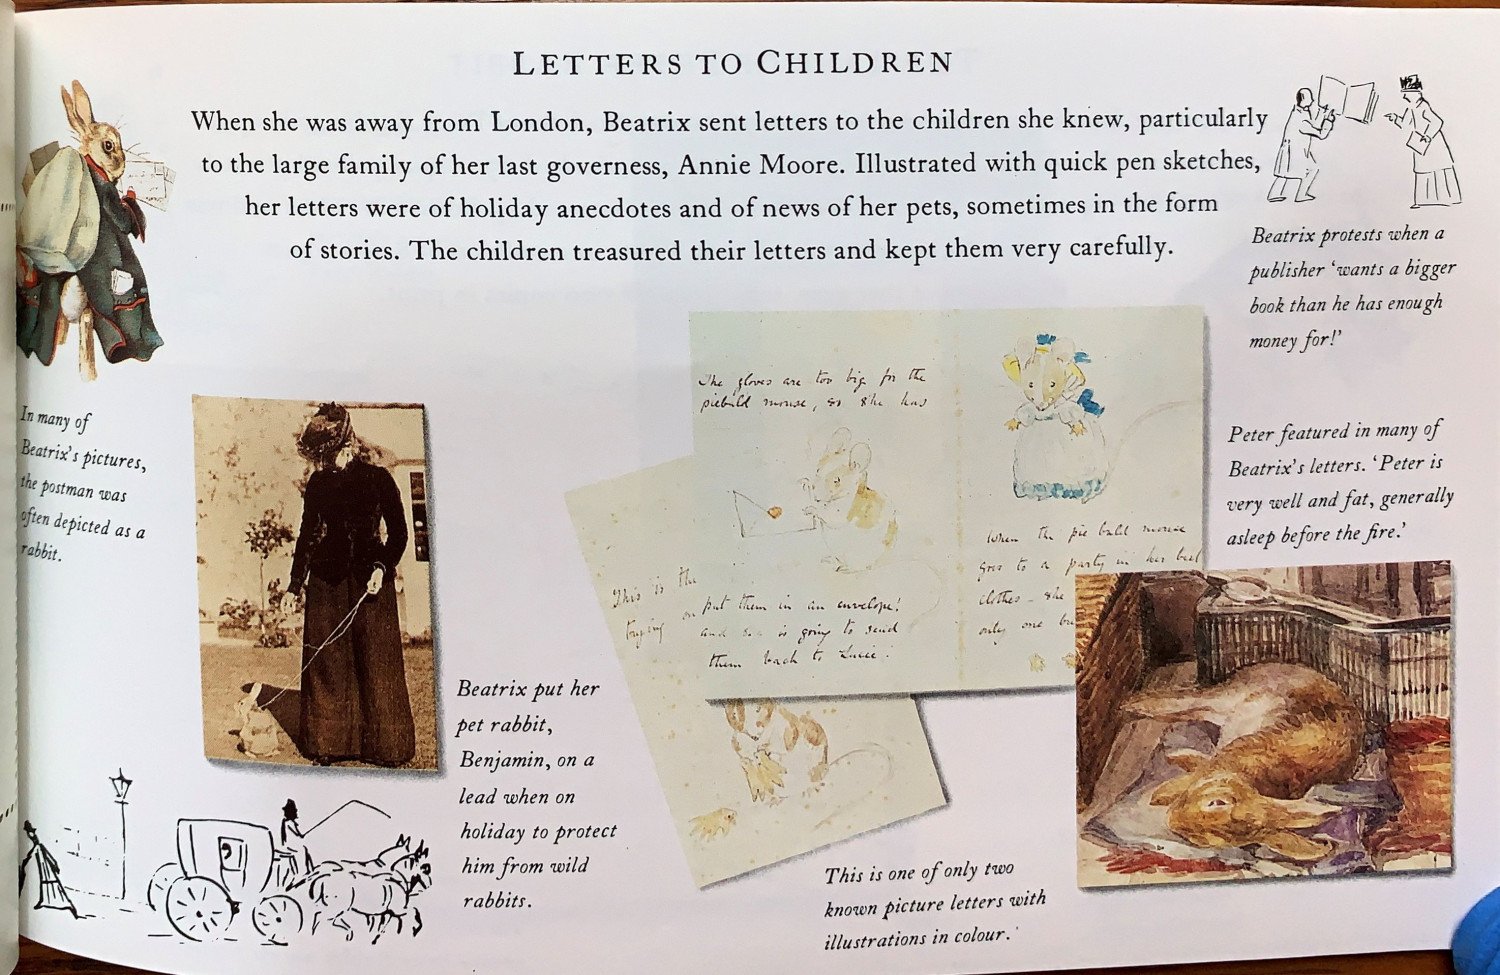 LETTERS TO CHILDREN
When she was away from London, Beatrix sent letters to the children she knew, particularly
to the large family of her last governess, Annie Moore. Illustrated with quick pen sketches,
her letters were of holiday anecdotes and of news of her pets, sometimes in the form
of stories. The children treasured their letters and kept them very carefully.
Beatrix protests when a
publisher ‘wants a bigger
book than he has enough
money for!’
In many of
Beatrix’s pictures,
the postman was
often depicted as a
rabbit.
The gloves are too big for the
piebald mouse, so she has
put them in an envelope!
and she is going to send
them back to Lucie!
When the pie bald mouse
goes to a party in her best
clothes - she
only one
This is the
trying
on
Peter featured in many of
Beatrix’s letters. ‘Peter is
very well and fat, generally
asleep before the fire.’
Beatrix put her
pet rabbit,
Benjamin, on a
lead when on
holiday to protect
him from wild
rabbits.
This is one of only two
known picture letters with
illustrations in colour.